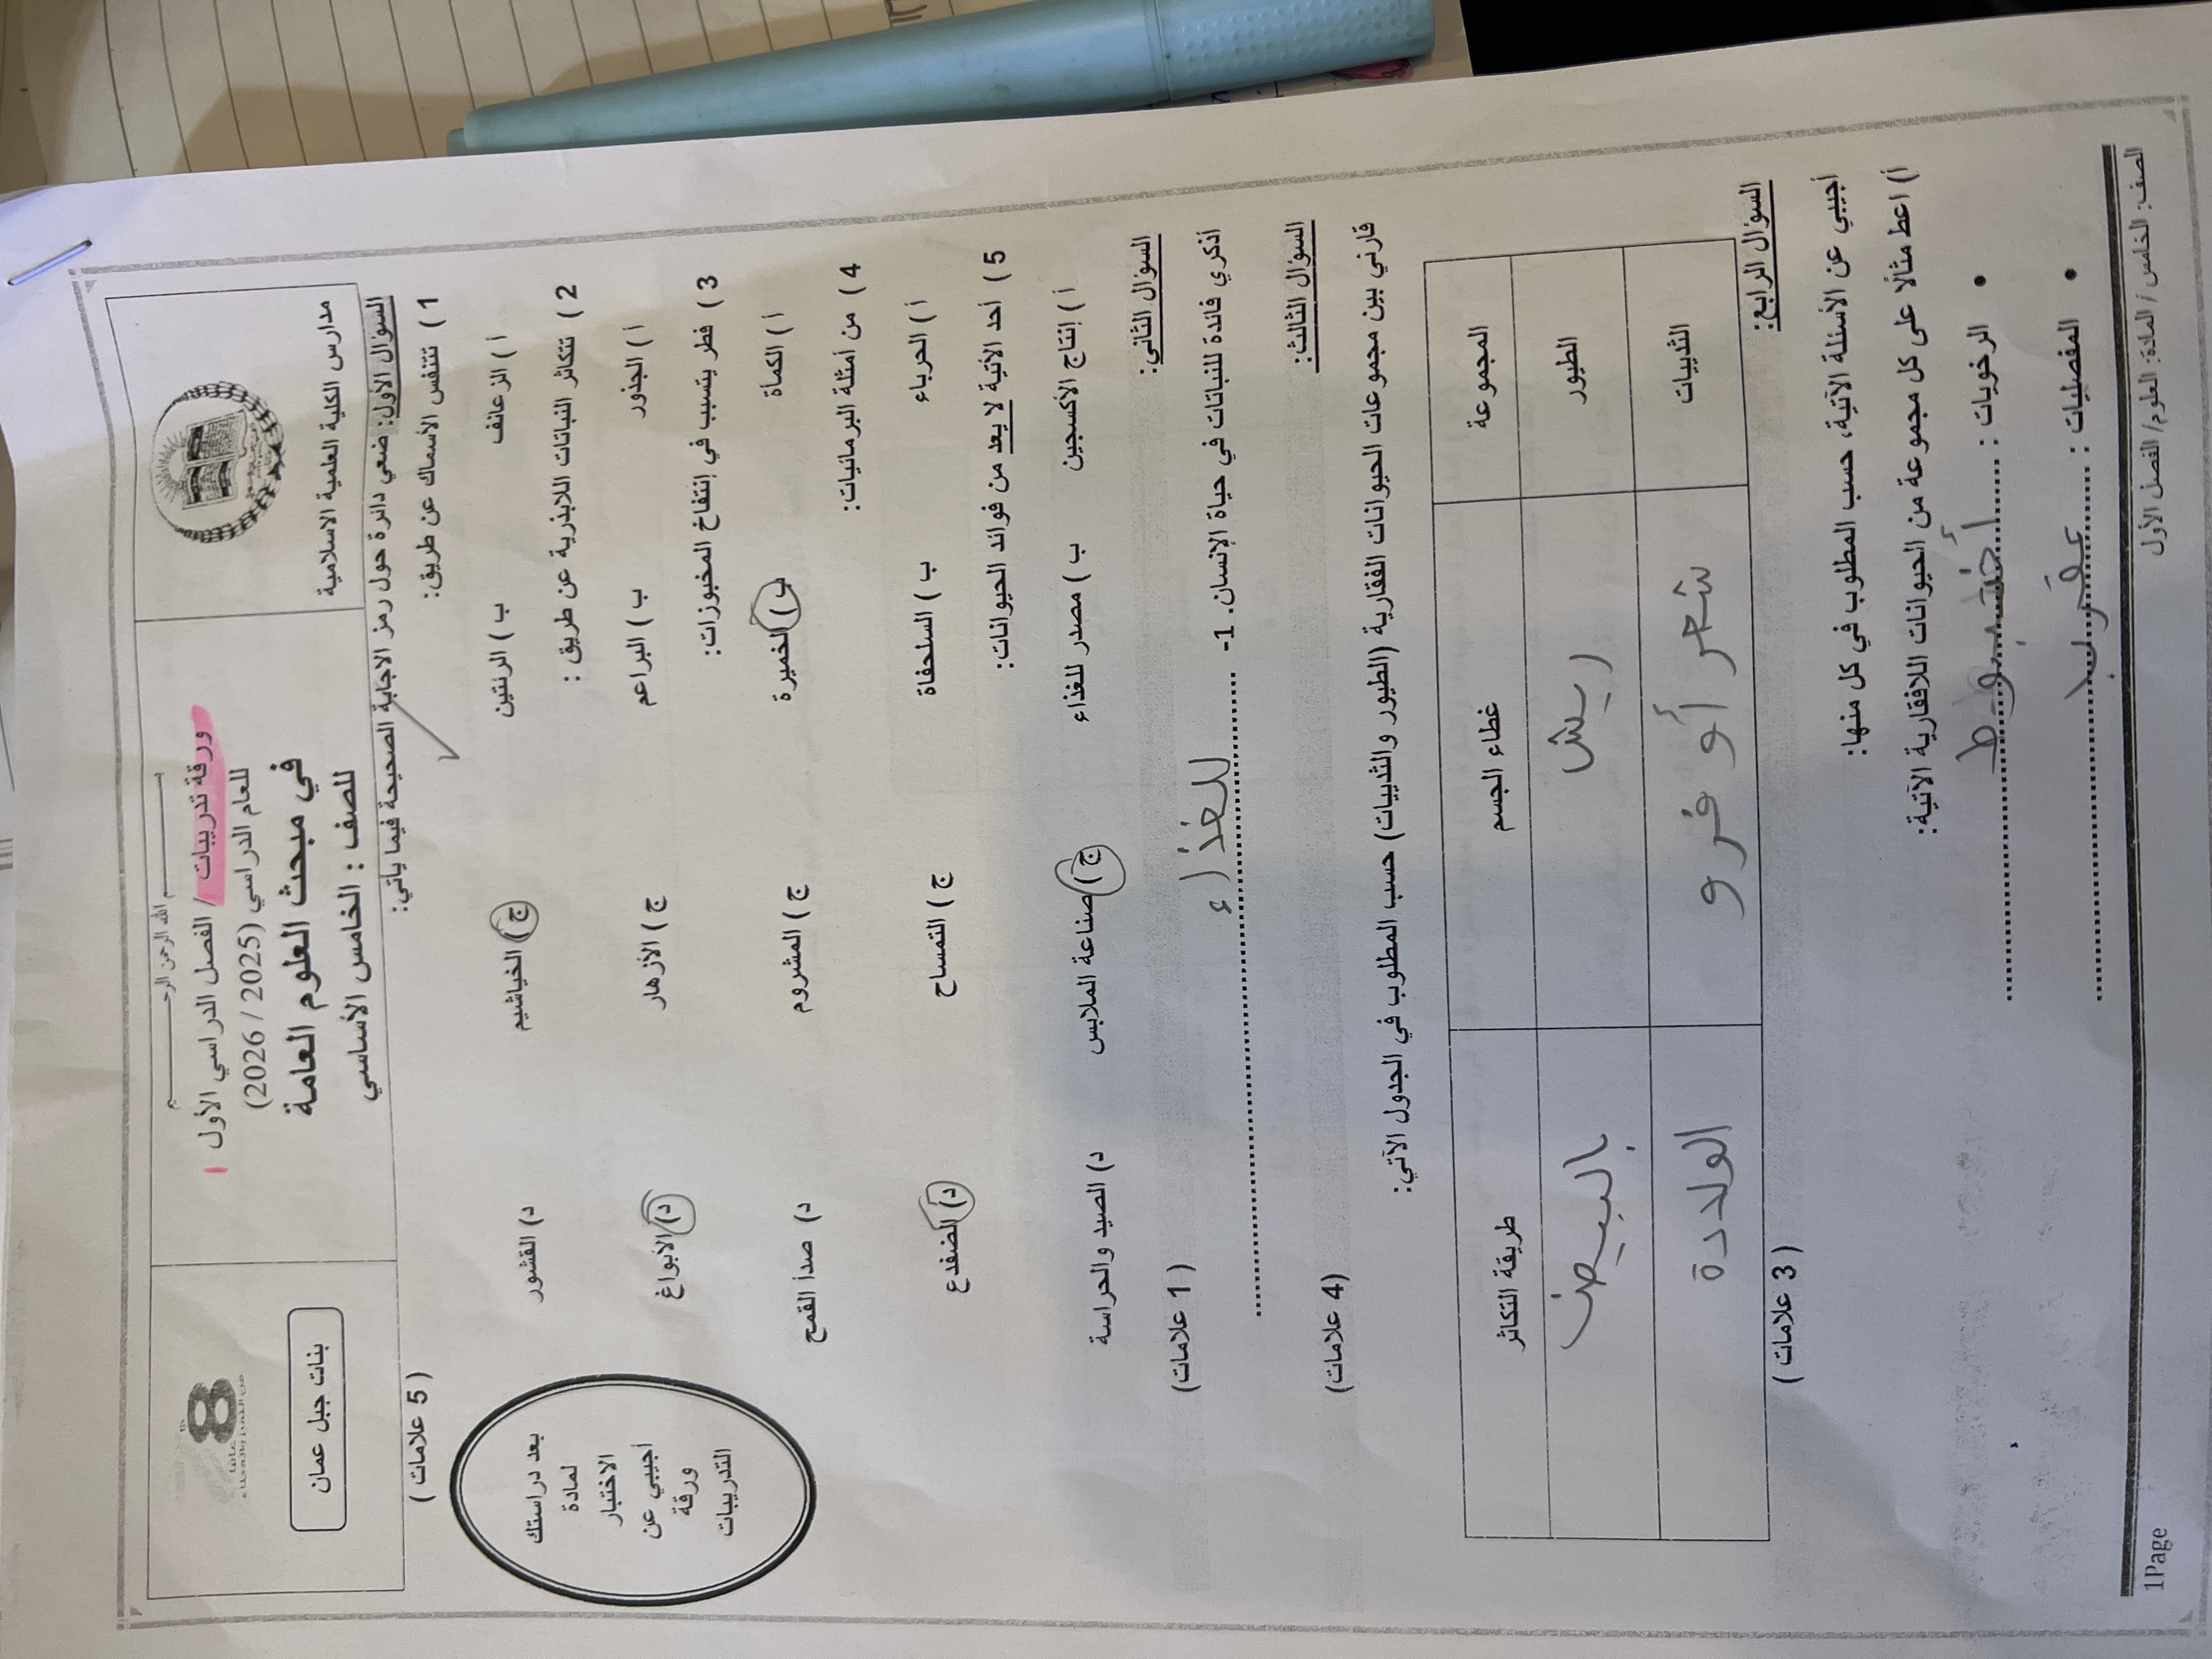 بسم الله الرحمن الرحيم
مدارس الكلية العلمية الاسلامية
ورقة تدريبات / الفصل الدراسي الأول
للعام الدراسي (2025 / 2026)
في مبحث العلوم العامة
للصف : الخامس الأساسي
بنات جبل عمان
السؤال الأول: ضعي دائرة حول رمز الاجابة الصحيحة فيما يأتي: ( 5 علامات )
1 ) تتنفس الأسماك عن طريق:
أ ) الزعانف ب ) الرئتين ج ) الخياشيم د) القشور
2 ) تتكاثر النباتات اللابذرية عن طريق :
أ ) الجذور ب ) البراعم ج ) الأزهار د) الأبواغ
3 ) فطر يتسبب في إنتفاخ المخبوزات:
أ ) الكمأة ب ) الخميرة ج ) المشروم د) صدأ القمح
4 ) من أمثلة البرمائيات:
أ ) الحرباء ب ) السلحفاة ج ) التمساح د) الضفدع
5 ) أحد الأتية لا يعد من فوائد الحيوانات:
أ ) إنتاج الأكسجين ب ) مصدر للغذاء ج ) صناعة الملابس د) الصيد والحراسة
بعد دراستك
لمادة
الاختبار
أجيبي عن
ورقة
التدريبات
السؤال الثاني: ( 1 علامات)
أذكري فائدة للنباتات في حياة الإنسان. 1- للغذاء
السؤال الثالث: (4 علامات)
قارني بين مجموعات الحيوانات الفقارية (الطيور والثدييات) حسب المطلوب في الجدول الآتي:
المجموعة غطاء الجسم طريقة التكاثر
الطيور ريش بالبيض
الثدييات شعر أو فرو الولادة
السؤال الرابع: ( 3 علامات )
أجيبي عن الأسئلة الآتية، حسب المطلوب في كل منها:
أ) اعط مثالًا على كل مجموعة من الحيوانات اللافقارية الآتية:
• الرخويات : أخطبوط
• المفصليات : عقرب
الصف: الخامس / المادة: العلوم/ الفصل الأول
1Page